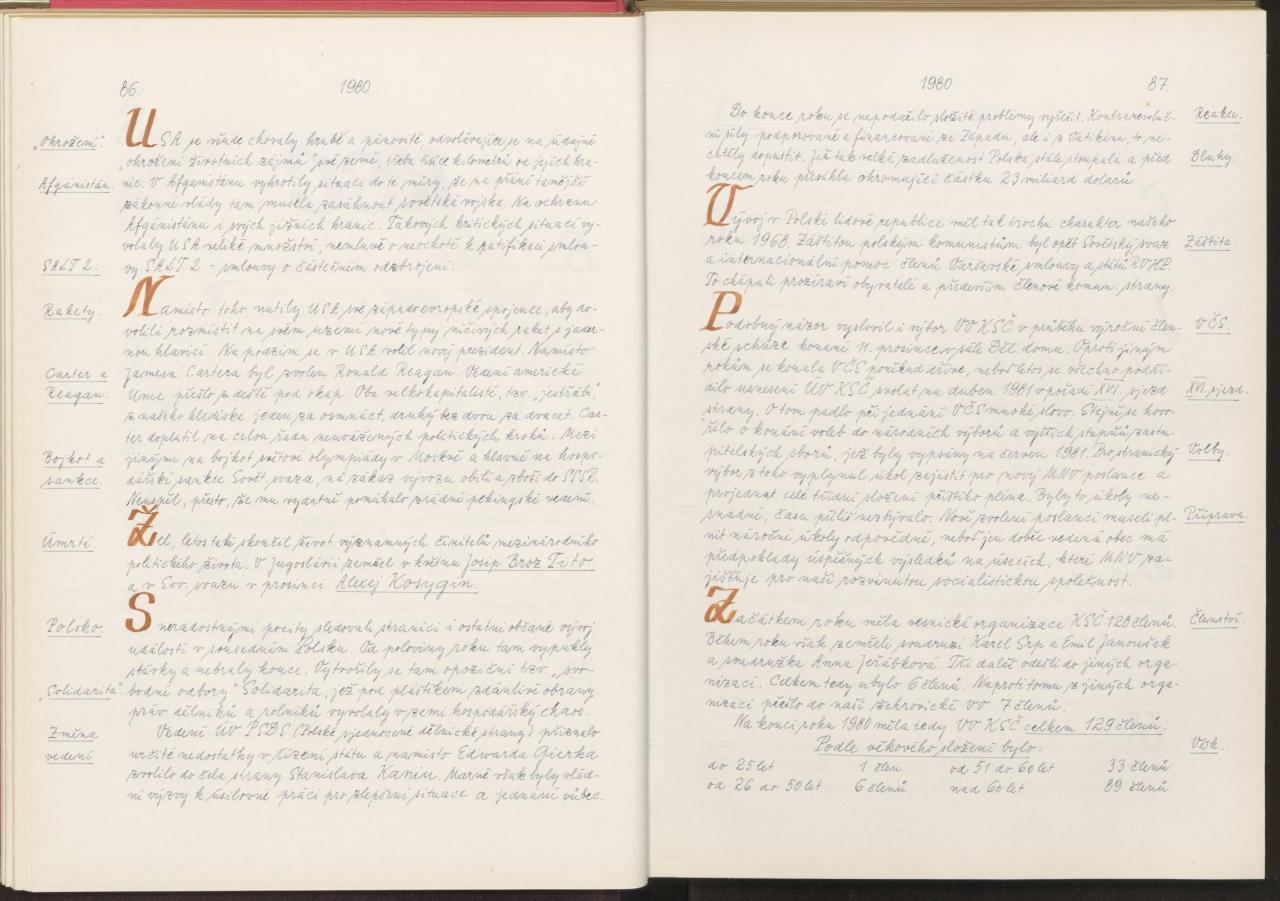 86.
1980
„Ohrožení".
USA se všude chovaly hrubě a pánovitě, odvolávajíce se na údajné
„ohrožení životních zájmů" své země, třeba tisíce kilometrů od jejich hra-
Afgánistán.
nic. V Afganistánu vyhrotily situaci do té míry, že na přání tamější
zákonné vlády tam musela zasáhnout sovětská vojska. Na ochranu
Afgánistánu i svých jižních hranic. Takových kritických situací vy-
volaly USA veliké množství, nemluvě o neochotě k ratifikaci smlou-
SALT 2.
vy SALT 2 - smlouvy o částečném odzbrojení.
Rakety.
Namísto toho nutily USA své západoevropské spojence, aby do-
volili rozmístit na svém území nové typy ničivých raket s jader-
nou hlavicí. Na podzim se v USA volil nový prezident. Namísto
Carter a
Reagan.
Jamesa Cartera byl zvolen Ronald Reagan. Vedení americké
Unie přešlo z deště pod okap. Oba velkokapitalisté, tzv. „jestřábi",
z našeho hlediska jeden za osmnáct, druhý bez dvou za dvacet. Car-
ter doplatil na celou řadu neuvážených politických kroků. Mezi
Bojkot a
sankce.
jinými na bojkot světové olympiády v Moskvě a hlavně na hospo-
dářské sankce Sovět. svazu, na zákaz vývozu obilí a zboží do SSSR.
Neuspěl, přesto, že mu vydatně pomáhalo zrádné pekingské vedení.
Úmrtí.
Žel, letos také skončil život významných činitelů mezinárodního
politického života. V Jugoslávii zemřel v květnu Josip Broz Tito
a v Sov. svazu v prosinci Alexej Kosygin.
Polsko.
S neradostnými pocity sledovali straníci i ostatní občané vývoj
událostí v sousedním Polsku. Od poloviny roku tam vypukly
stávky a nebraly konce. Vytvořily se tam opoziční tzv. „svo-
„Solidarita".
bodné odbory" Solidarita, jež pod pláštíkem zdánlivé obrany
práv dělníků a rolníků vyvolaly v zemi hospodářský chaos.
Změna
vedení
Vedení ÚV PSDS (Polské sjednocené dělnické strany) přiznalo
určité nedostatky v řízení státu a namísto Edwarda Gierka
zvolilo do čela strany Stanislava Kaniu. Marné však byly vlád-
ní výzvy k úsilovné práci pro zlepšení situace a jednání vůbec.
1980
87.
Do konce roku se nepodařilo složité problémy vyřešit. Kontrarevoluč-
Reakce.
ní síly podporované a financované ze Západu, ale i z Vatikánu, to ne-
chtěly dopustit. Již tak velká zadluženost Polska stále stoupala a před
Dluhy.
koncem roku přesáhla ohromující částku 23 miliard dolarů.
Vývoj v Polské lidové republice měl tak trochu charakter našeho
roku 1968. Záštitou polským komunistům byl opět Sovětský svaz
Záštita.
a internacionální pomoc členů Varšavské smlouvy a států RVHP.
To chápali prozíraví obyvatelé a především členové komun. strany.
Podobný názor vyslovil i výbor VO KSČ v průběhu výroční člen-
VČS.
ské schůze konané 11. prosince v sále Děl. domu. Oproti jiným
rokům se konala VČS poněkud dříve, neboť letos se všechno podří-
dilo usnesení ÚV KSČ svolat na duben 1981 v pořadí XVI. sjezd
XVI. sjezd.
strany. O tom padlo při jednání VČS mnohé slovo. Stejně se hovo-
řilo o konání voleb do národních výborů a vyšších stupňů zastu-
pitelských sborů, jež byly vypsány na červen 1981. Pro stranický
Volby.
výbor z toho vyplynul úkol zajistit pro nový MNV poslance a
projednat celé třídní složení příštího pléna. Byly to úkoly ne-
snadné, času příliš nezbývalo. Nově zvolení poslanci museli pl-
Příprava.
nit náročné úkoly odpovědně, neboť jen dobře vedená obec má
předpoklady úspěšných výsledků na úsecích, které MNV za-
jišťuje pro naši rozvinutou socialistickou společnost.
Začátkem roku měla vesnická organizace KSČ 128 členů.
Členství.
Během roku však zemřeli soudruzi Karel Srp a Emil Janoušek
a soudružka Anna Jeřábková. Tři další odešli do jiných orga-
nizací. Celkem tedy ubylo 6 členů. Naproti tomu z jiných orga-
nizací přešlo do naší zehrovické VO 7 členů.
Na konci roku 1980 měla tedy VO KSČ celkem 129 členů.
Podle věkového složení bylo:
Věk.
do 25 let 1 člen od 51 do 60 let 33 členů
od 26 do 50 let 6 členů nad 60 let 89 členů